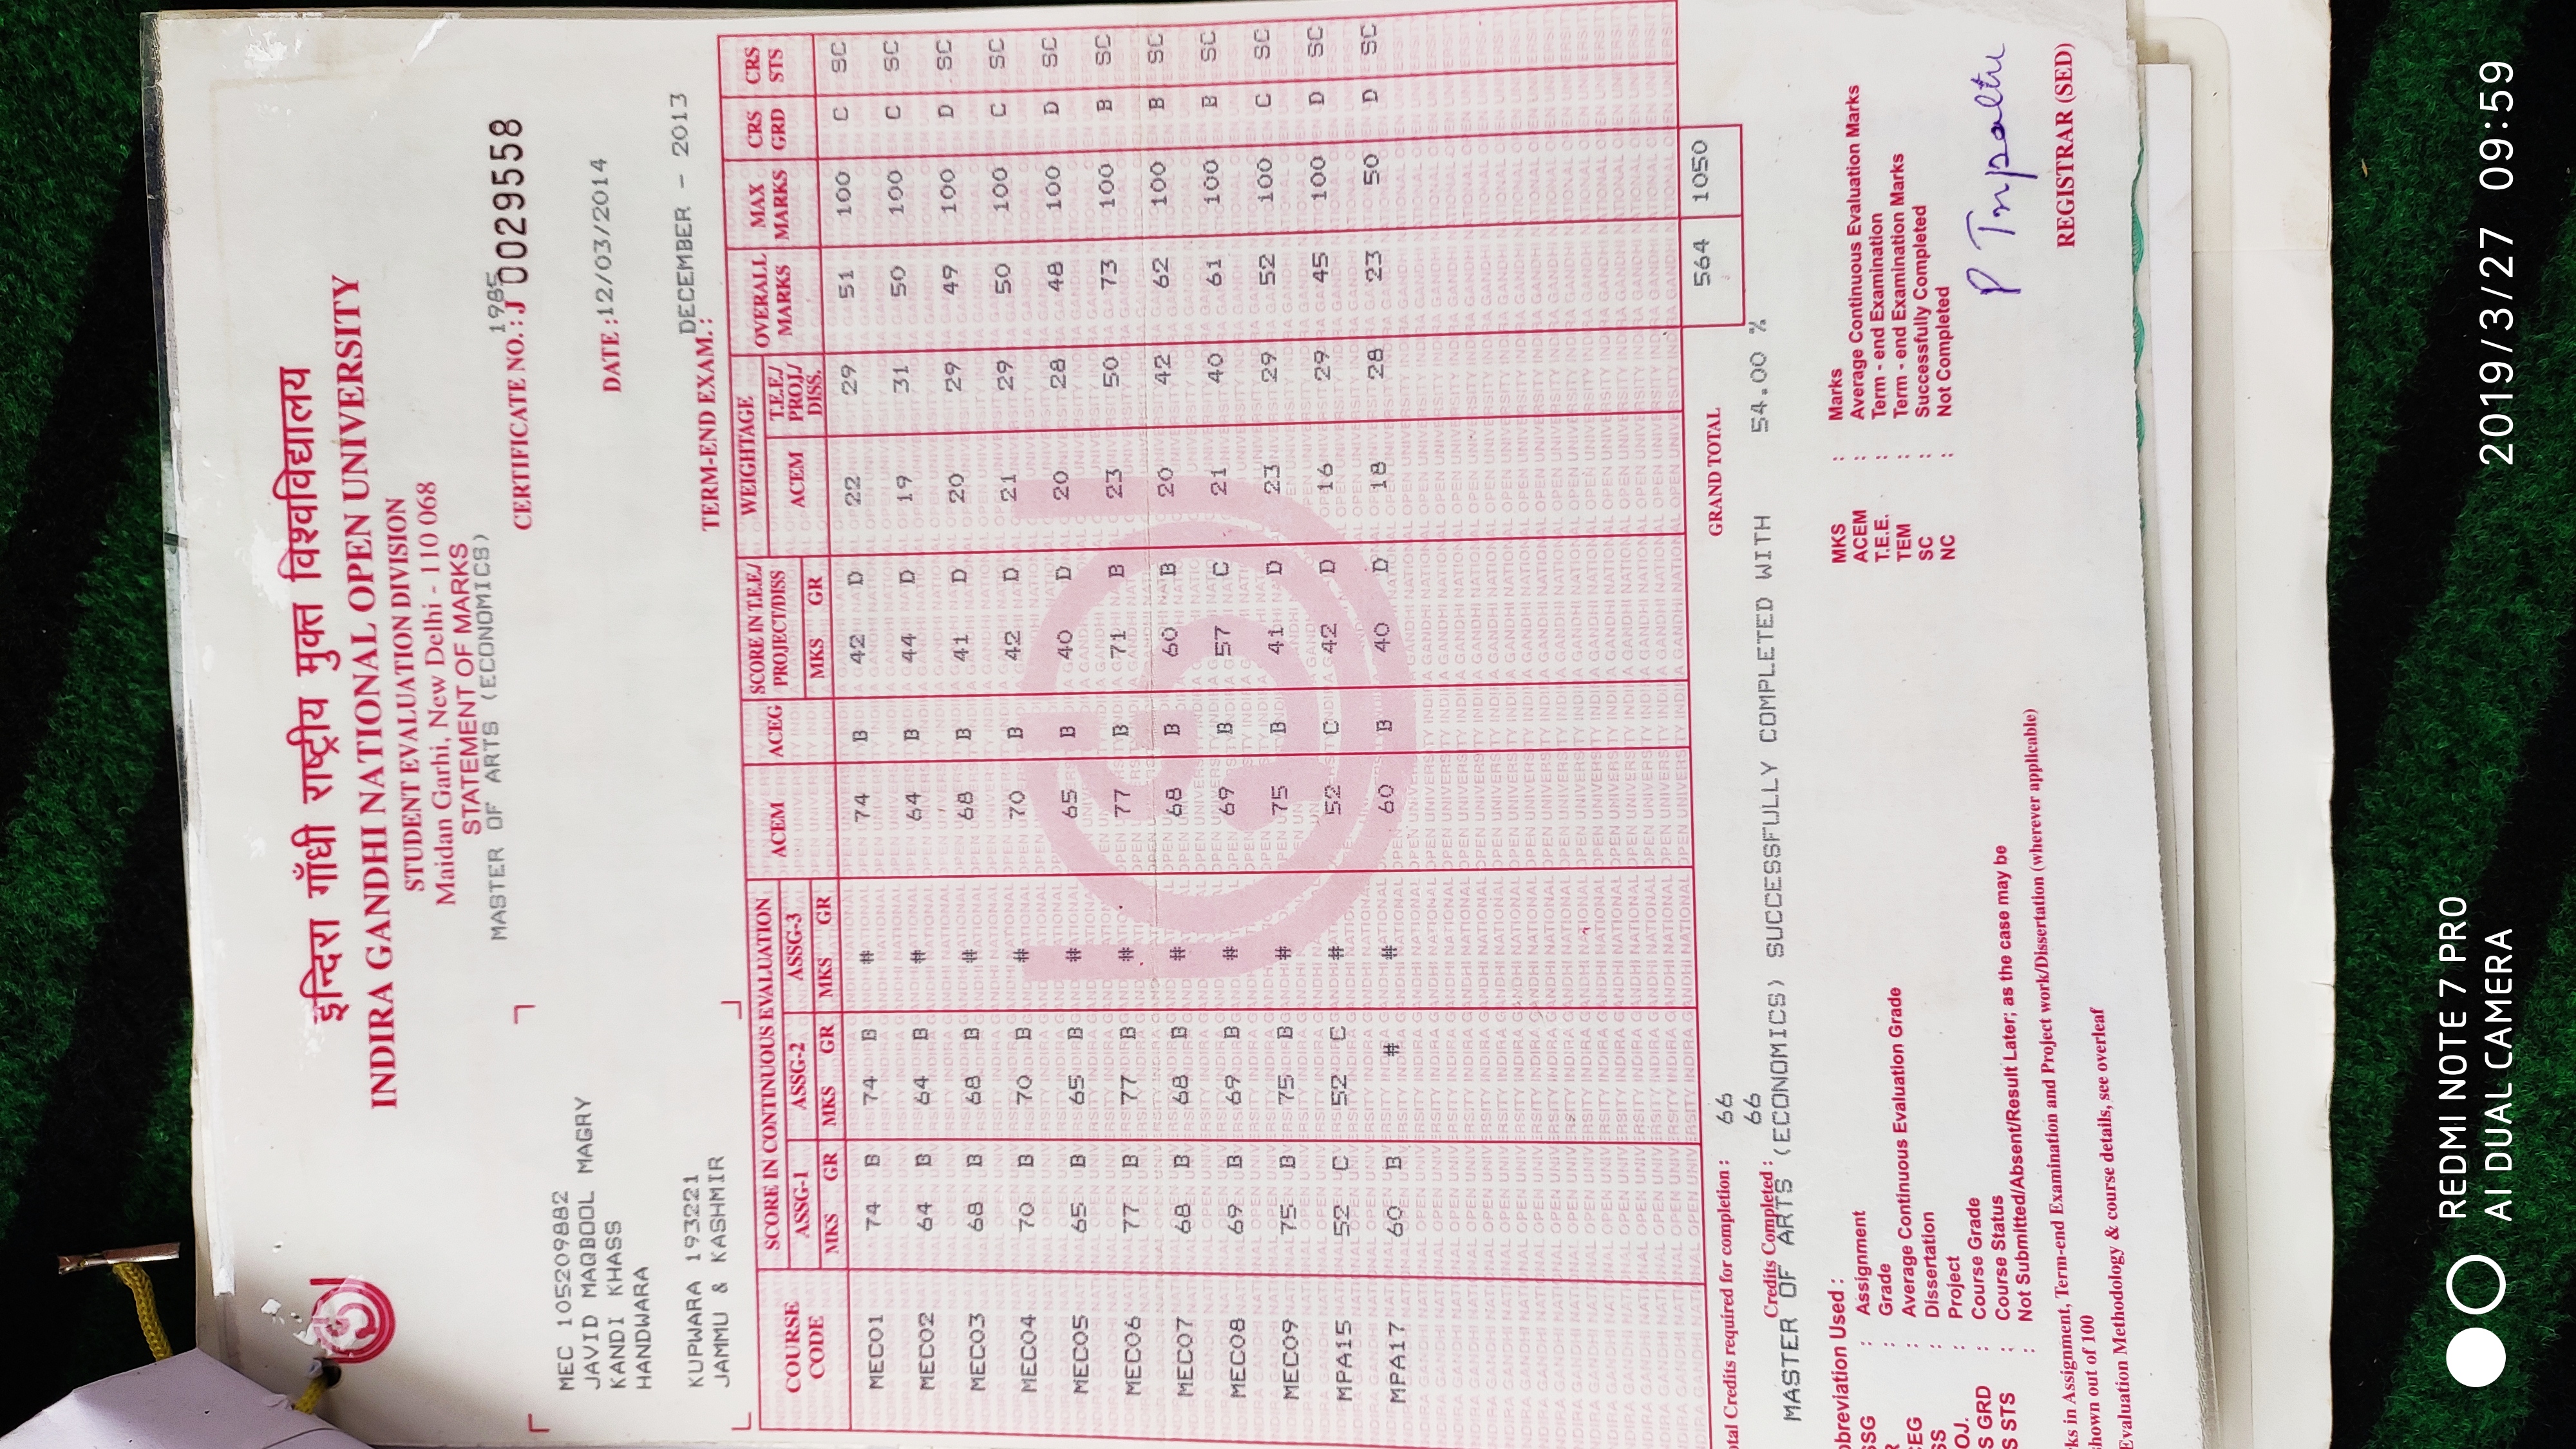 इन्दिरा गाँधी राष्ट्रीय मुक्त विश्वविद्यालय
INDIRA GANDHI NATIONAL OPEN UNIVERSITY
STUDENT EVALUATION DIVISION
Maidan Garhi, New Delhi - 110 068
STATEMENT OF MARKS
MASTER OF ARTS (ECONOMICS)
1985
CERTIFICATE NO.: J 00295558
MEC 105209882
JAVID MAQBOOL MAGRY
KANDI KHASS
HANDWARA
KUPWARA 193221
JAMMU & KASHMIR
DATE :12/03/2014
DECEMBER - 2013
TERM-END EXAM.:
COURSE CODE SCORE IN CONTINUOUS EVALUATION ACEM ACEG SCORE IN T.E.E./ PROJECT/DISS WEIGHTAGE OVERALL MARKS MAX MARKS CRS GRD CRS STS
ASSG-1 ASSG-2 ASSG-3 ACEM T.E.E./ PROJ./ DISS.
MKS GR MKS GR MKS GR MKS GR
MEC01 74 B 74 B # 74 B 42 D 22 29 51 100 C SC
MEC02 64 B 64 B # 64 B 44 D 19 31 50 100 C SC
MEC03 68 B 68 B # 68 B 41 D 20 29 49 100 D SC
MEC04 70 B 70 B # 70 B 42 D 21 29 50 100 C SC
MEC05 65 B 65 B # 65 B 40 D 20 28 48 100 D SC
MEC06 77 B 77 B # 77 B 71 B 23 50 73 100 B SC
MEC07 68 B 68 B # 68 B 60 B 20 42 62 100 B SC
MEC08 69 B 69 B # 69 B 57 C 21 40 61 100 B SC
MEC09 75 B 75 B # 75 B 41 D 23 29 52 100 C SC
MPA15 52 C 52 C # 52 C 42 D 16 29 45 100 D SC
MPA17 60 B # # 60 B 40 D 18 28 23 50 D SC
GRAND TOTAL 564 1050
otal Credits required for completion : 66
Credits Completed : 66
MASTER OF ARTS (ECONOMICS) SUCCESSFULLY COMPLETED WITH 54.00 %
bbreviation Used :
SSG : Assignment
R : Grade
CEG : Average Continuous Evaluation Grade
SS : Dissertation
OJ. : Project
S GRD : Course Grade
S STS : Course Status
: Not Submitted/Absent/Result Later; as the case may be
MKS : Marks
ACEM : Average Continuous Evaluation Marks
T.E.E. : Term - end Examination
TEM : Term - end Examination Marks
SC : Successfully Completed
NC : Not Completed
ks in Assignment, Term-end Examination and Project work/Dissertation (wherever applicable)
hown out of 100
Evaluation Methodology & course details, see overleaf
REGISTRAR (SED)
REDMI NOTE 7 PRO
AI DUAL CAMERA
2019/3/27 09:59